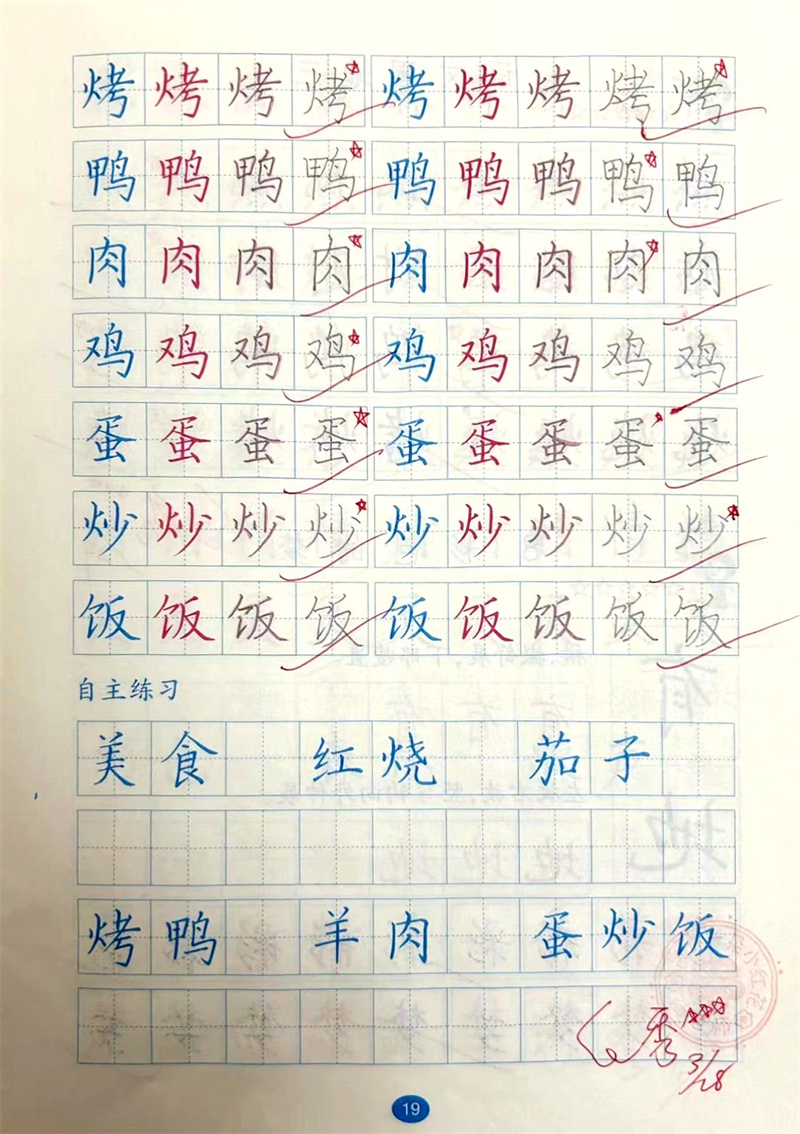 烤烤烤烤烤烤烤烤烤
鸭鸭鸭鸭鸭鸭鸭鸭鸭
肉肉肉肉肉肉肉肉肉
鸡鸡鸡鸡鸡鸡鸡鸡鸡
蛋蛋蛋蛋蛋蛋蛋蛋蛋
炒炒炒炒炒炒炒炒炒
饭饭饭饭饭饭饭饭饭
自主练习
美食 红烧 茄子
烤鸭 羊肉 蛋炒饭
小红花
秀
3/28
19